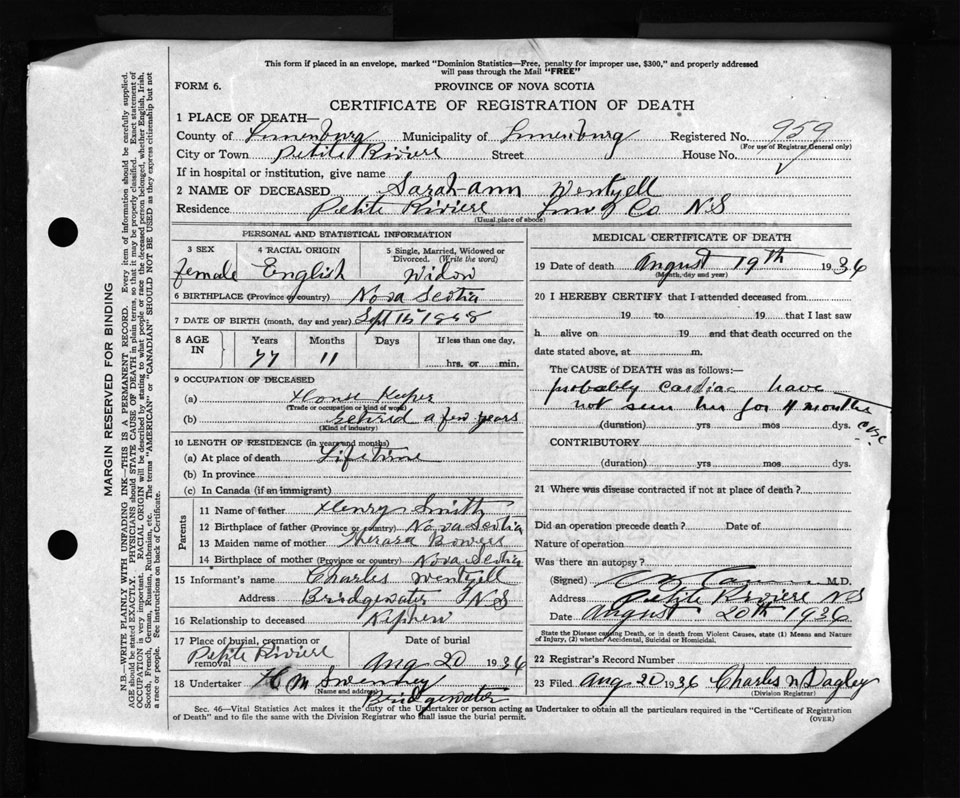 This form if placed in an envelope, marked "Dominion Statistics—Free, penalty for improper use, $300," and properly addressed
will pass through the Mail "FREE"
FORM 6.
PROVINCE OF NOVA SCOTIA
CERTIFICATE OF REGISTRATION OF DEATH
1 PLACE OF DEATH—
County of Lunenburg Municipality of Lunenburg Registered No. 959
(For use of Registrar General only)
City or Town Petite Riviere Street House No.
If in hospital or institution, give name
2 NAME OF DECEASED Sarah Ann Wentzell
Residence Petite Riviere Lun Co NS
(Usual place of abode)
MARGIN RESERVED FOR BINDING
N.B.—WRITE PLAINLY WITH UNFADING INK—THIS IS A PERMANENT RECORD. Every item of information should be carefully supplied.
AGE should be stated EXACTLY. PHYSICIANS should STATE CAUSE OF DEATH in plain terms, so that it may be properly classified. Exact statement of
OCCUPATION is very important. RACIAL ORIGIN will be described by stating to what people or race the deceased person belonged, whether English, Irish,
Scotch, French, German, Russian, Ruthenian, etc. The terms "AMERICAN" or "CANADIAN" SHOULD NOT BE USED as they express citizenship but not
a race or people. See instructions on back of Certificate.
PERSONAL AND STATISTICAL INFORMATION
3 SEX 4 RACIAL ORIGIN 5 Single, Married, Widowed or
Divorced. (Write the word)
female English Widow
6 BIRTHPLACE (Province or country) Nova Scotia
7 DATE OF BIRTH (month, day and year) Sept 15 1958
8 AGE IN Years Months Days If less than one day,
77 11 hrs. or min.
9 OCCUPATION OF DECEASED
(a) House Keeper
(Trade or occupation or kind of work)
(b) Retired a few years
(Kind of industry)
10 LENGTH OF RESIDENCE (in years and months)
(a) At place of death Lifetime
(b) In province
(c) In Canada (if an immigrant)
Parents
11 Name of father Henry Smith
12 Birthplace of father (Province or country) Nova Scotia
13 Maiden name of mother Bowers
14 Birthplace of mother (Province or country) Nova Scotia
15 Informant's name Charles Wentzell
Address Bridgewater NS
16 Relationship to deceased Nephew
17 Place of burial, cremation or removal Date of burial
Petite Riviere Aug 20 1936
18 Undertaker H M Sweeney
(Name and address)
Bridgewater
MEDICAL CERTIFICATE OF DEATH
19 Date of death August 19th 1936
(Month, day and year)
20 I HEREBY CERTIFY that I attended deceased from
19 to 19 that I last saw
h alive on 19 and that death occurred on the
date stated above, at m.
The CAUSE of DEATH was as follows:—
probably cardiac have
not seen her for 4 months
(duration) yrs mos dys.
CONTRIBUTORY
(duration) yrs mos dys.
21 Where was disease contracted if not at place of death?
Did an operation precede death? Date of
Nature of operation
Was there an autopsy?
(Signed) M.D.
Address Petite Riviere NS
Date August 20th 1936
State the Disease causing Death, or in death from Violent Causes, state (1) Means and Nature
of Injury, (2) whether Accidental, Suicidal or Homicidal.
22 Registrar's Record Number
23 Filed Aug 20 1936 Charles N Dagley
(Division Registrar)
Sec. 46—Vital Statistics Act makes it the duty of the Undertaker or person acting as Undertaker to obtain all the particulars required in the "Certificate of Registration
of Death" and to file the same with the Division Registrar who shall issue the burial permit.
(OVER)